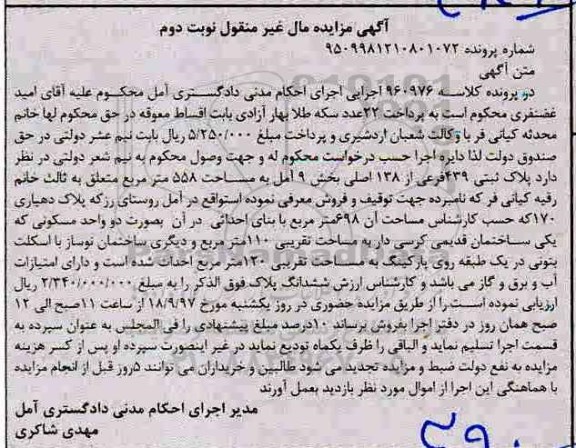 آگهی مزایده مال غیر منقول نوبت دوم
شماره پرونده ۹۵۰۹۹۸۱۲۱۰۸۰۱۰۷۲
متن آگهی
در پرونده کلاسه ۹۶۰۹۷۶ اجرایی اجرای احکام مدنی دادگستری آمل محکوم علیه آقای امید
غضنفری محکوم است به پرداخت ۲۲عدد سکه طلا بهار آزادی بابت اقساط معوقه در حق محکوم لها خانم
محدثه کیانی فر با وکالت شعبان اردشیری و پرداخت مبلغ ۵/۲۵۰/۰۰۰ ریال بابت نیم عشر دولتی در حق
صندوق دولت لذا دایره اجرا حسب درخواست محکوم له و جهت وصول محکوم به نیم شعر دولتی در نظر
دارد پلاک ثبتی ۴۳۹فرعی از ۱۳۸ اصلی بخش ۹ آمل به مساحت ۵۵۸ متر مربع متعلق به ثالث خانم
رقیه کیانی فر که نامبرده جهت توقیف و فروش معرفی نموده استواقع در آمل روستای رزکه پلاک دهیاری
۱۷۰که حسب کارشناس مساحت آن ۶۹۸متر مربع با بنای احداثی در آن بصورت دو واحد مسکونی که
یکی ساختمان قدیمی کرسی دار به مساحت تقریبی ۱۱۰متر مربع و دیگری ساختمان نوساز با اسکلت
بتونی در یک طبقه روی پارکینگ به مساحت تقریبی ۱۳۰متر مربع احداث شده است و دارای امتیازات
آب و برق و گاز می باشد و کارشناس ارزش ششدانگ پلاک فوق الذکر را به مبلغ ۲/۳۴۰/۰۰۰/۰۰۰ ریال
ارزیابی نموده است.را از طریق مزایده حضوری در روز یکشنبه مورخ ۱۸/۹/۹۷ از ساعت ۱۱صبح الی ۱۲
صبح همان روز در دفتر اجرا بفروش برساند ۱۰درصد مبلغ پیشنهادی را فی المجلس به عنوان سپرده به
قسمت اجرا تسلیم نماید و الباقی را ظرف یکماه تودیع نماید در غیر اینصورت سپرده او پس از کسر هزینه
مزایده به نفع دولت ضبط و مزایده تجدید می شود طالبین و خریداران می توانند ۵روز قبل از انجام مزایده
با هماهنگی این اجرا از اموال مورد نظر بازدید بعمل آورند
مدیر اجرای احکام مدنی دادگستری آمل
مهدی شاکری